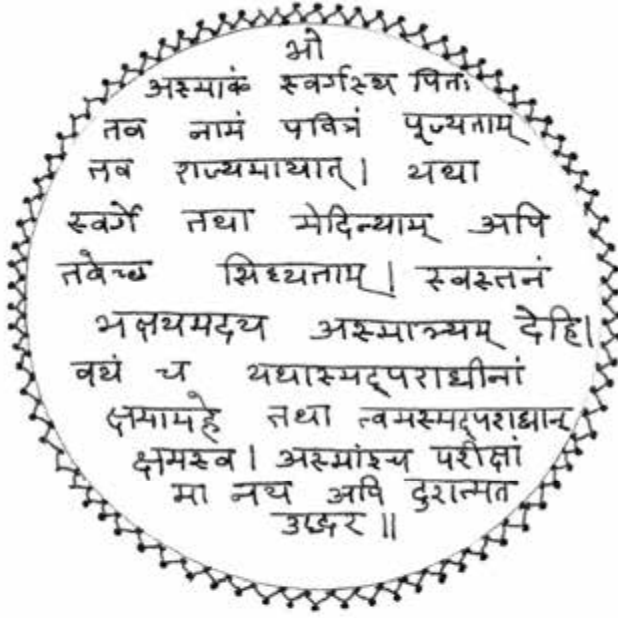 भो
अस्माकं स्वर्गस्थ पितः
तव नामं पवित्रं पूज्यताम्
तव राज्यमायात्। यथा
स्वर्गे तथा मेदिन्याम् अपि
तवेच्छ सिध्यताम्। स्वस्तनं
भक्षयमदय अस्मात्भ्यम् देहि।
वयं च यथास्मद्पराधीनां
क्षमामहे तथा त्वमस्मद्पराधान्
क्षमस्व। अस्मांश्च परीक्षां
मा नय अपि दुरात्मत
उद्धर॥